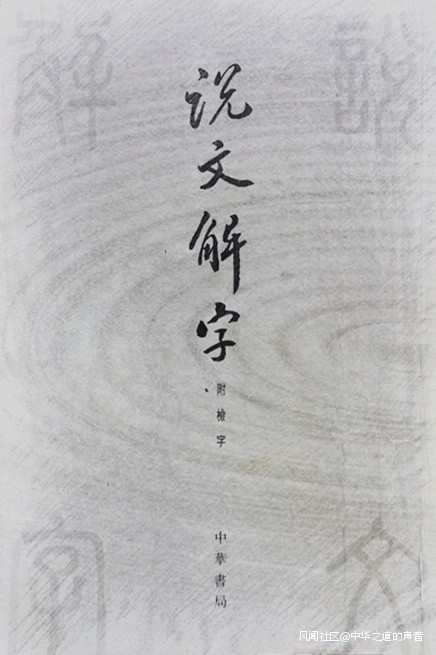 说文解字
附檢字
中華書局
說
文
解
字
风闻社区@中华之道的声音